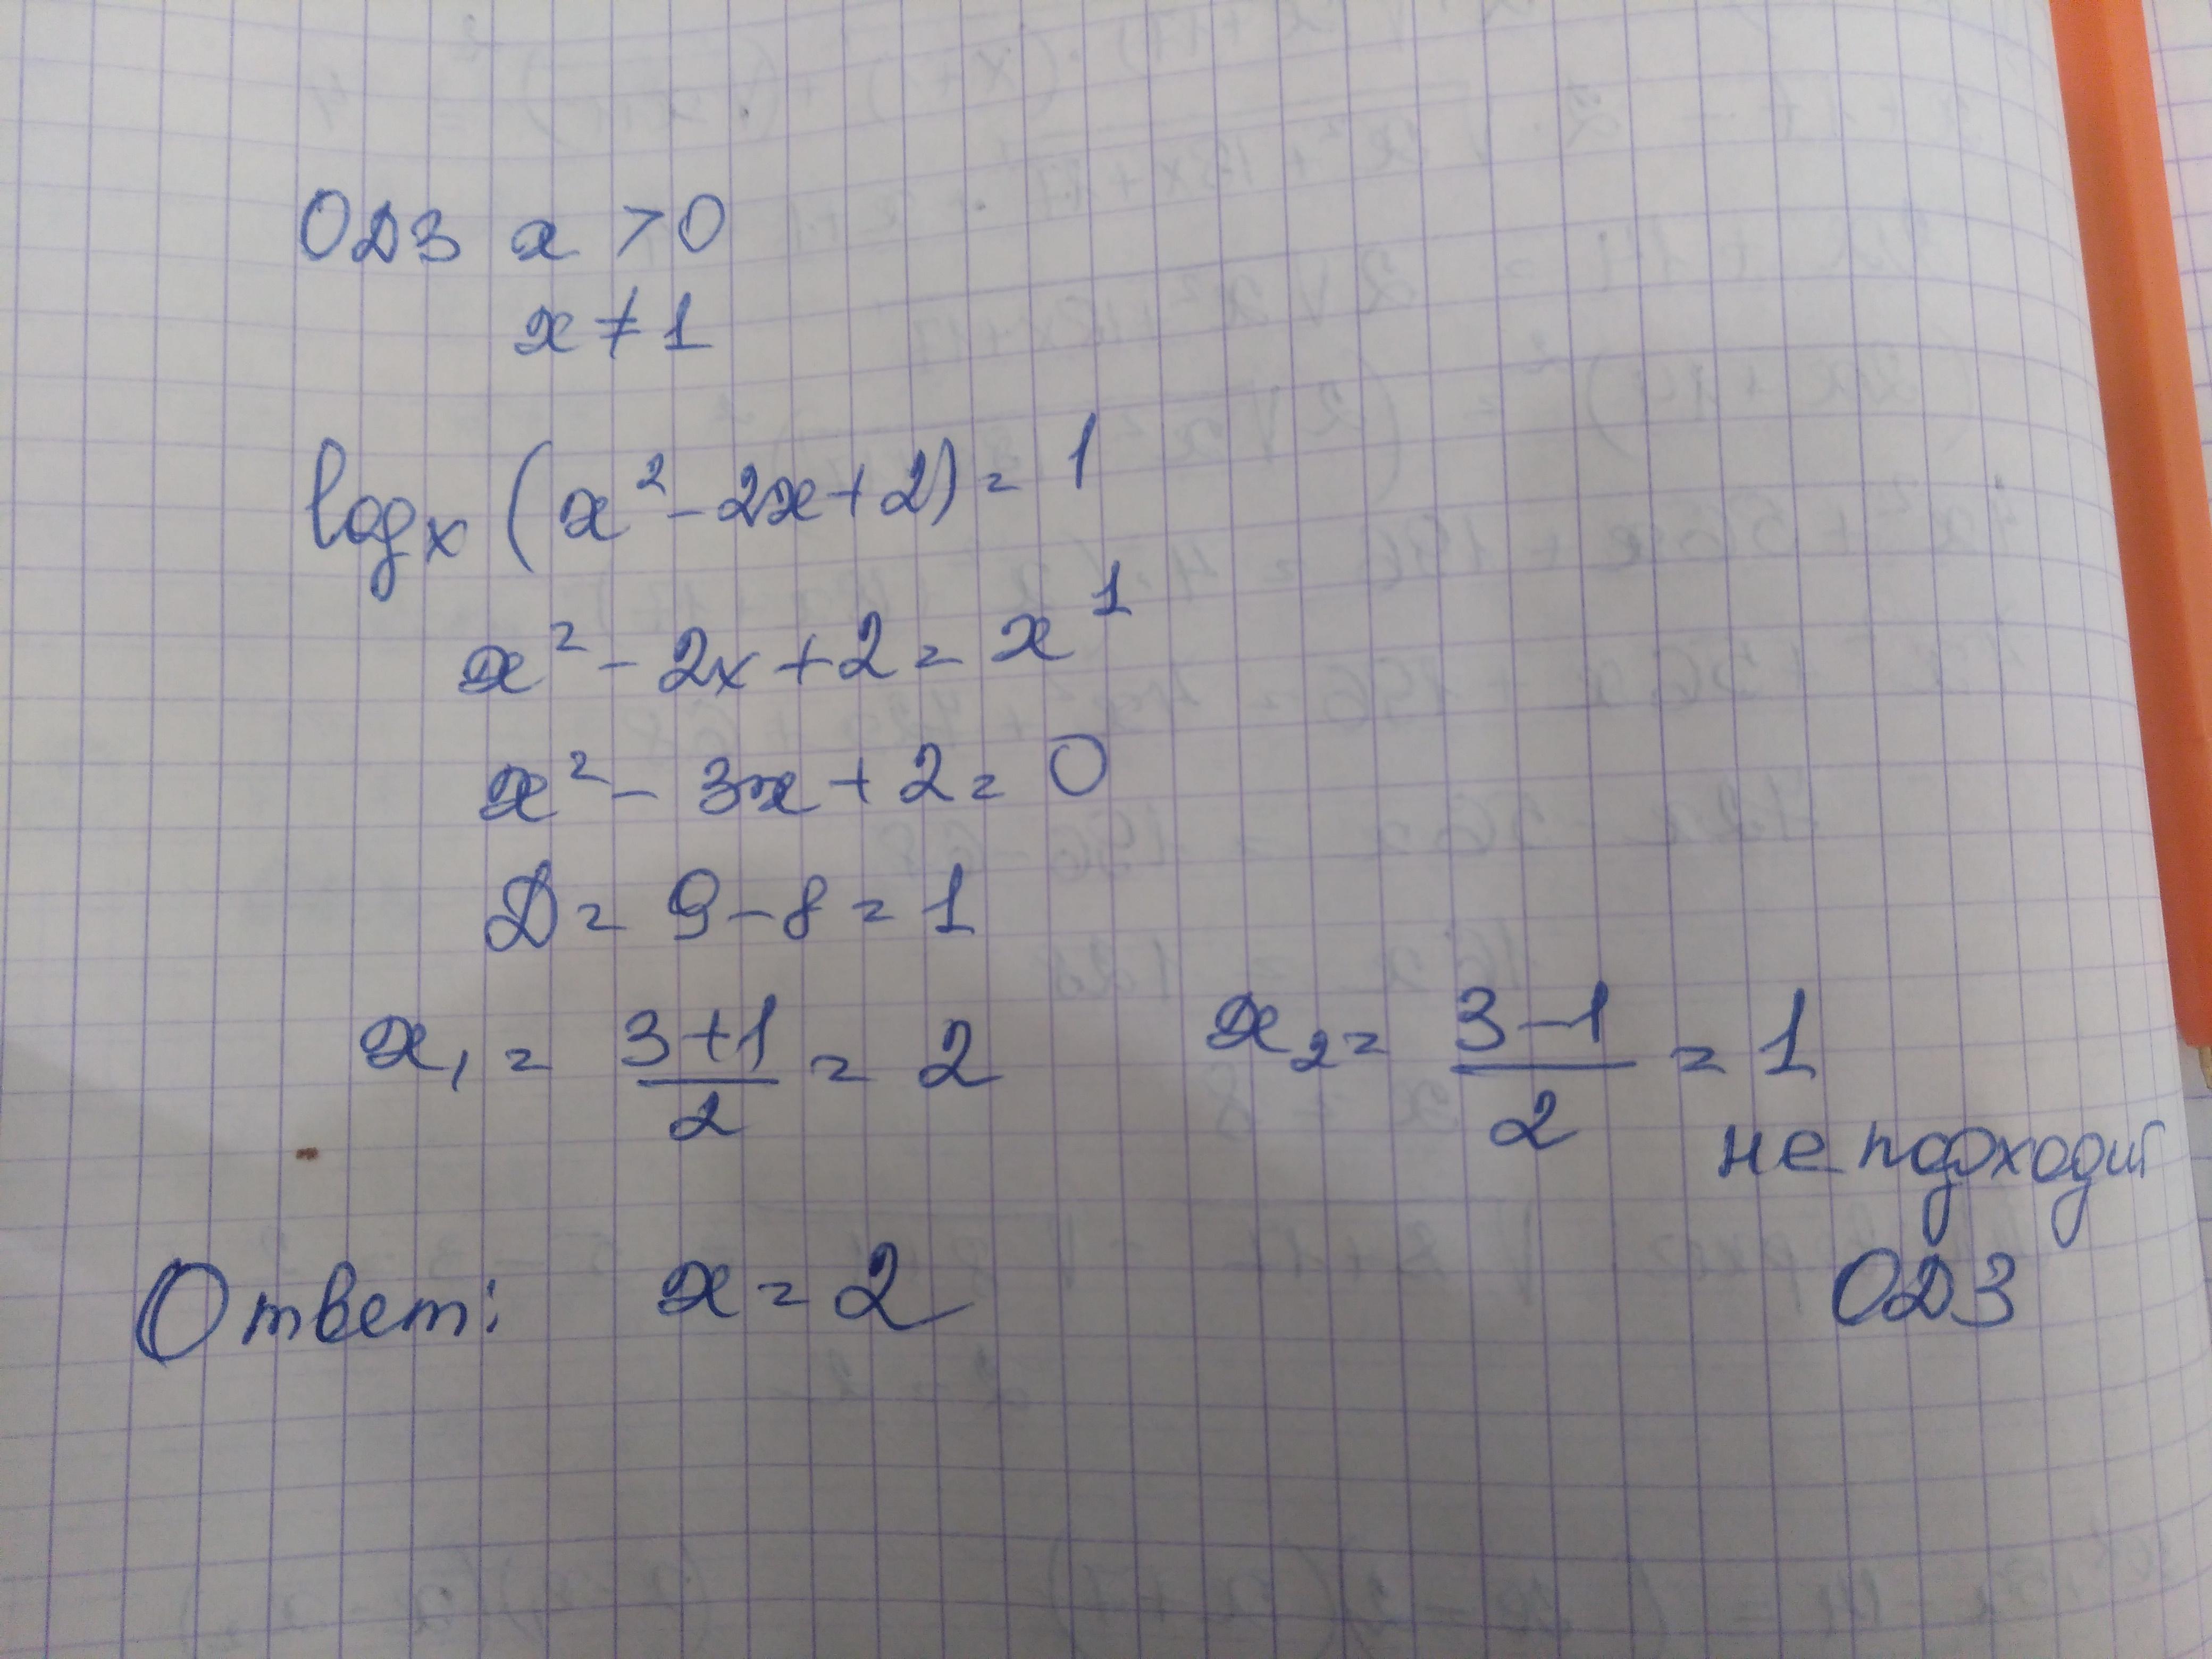 ОДЗ x > 0
x ≠ 1
log_x (x² - 2x + 2) = 1
x² - 2x + 2 = x¹
x² - 3x + 2 = 0
D = 9 - 8 = 1
x₁ = (3+1)/2 = 2    x₂ = (3-1)/2 = 1
не подходит
ОДЗ
Ответ: x = 2